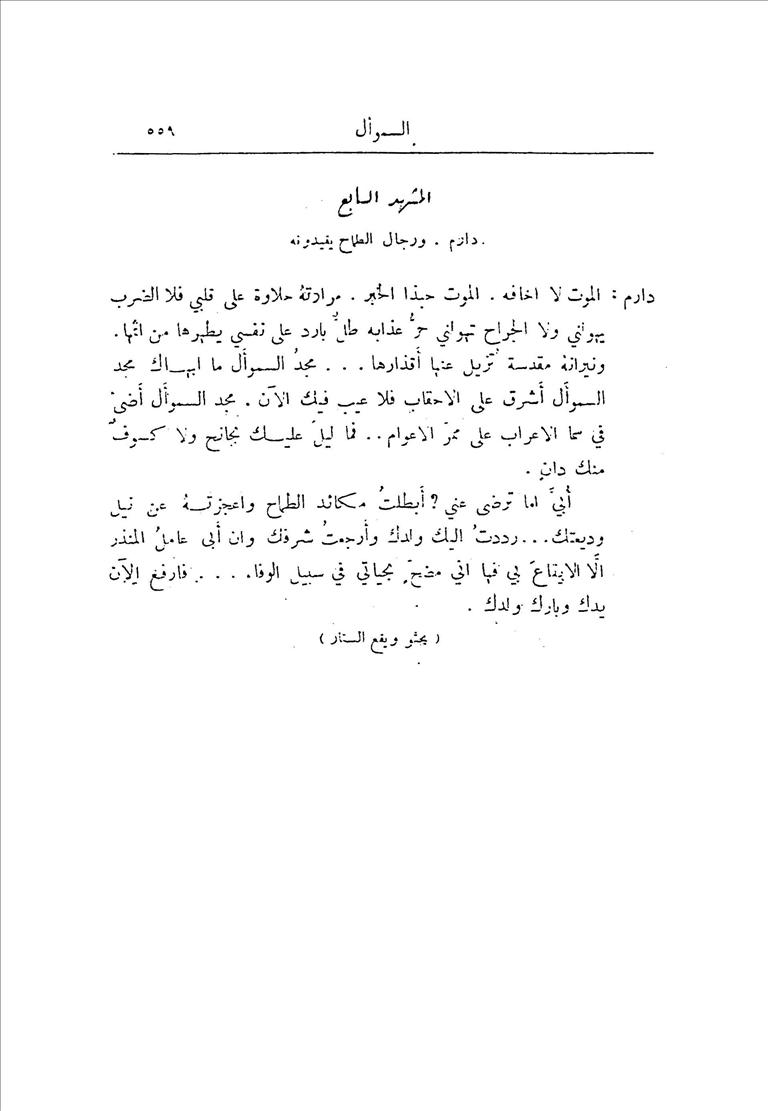 السموأل ٥٥٩
المشهد السابع
دارم . ورجال الطماح يقيدونه
دارم : الموت لا اخافه . الموت حبذا الخبر . مرارتهُ حلاوة على قلبي فلا الضرب
يهولني ولا الجراح تهولني حرُّ عذابه طلٌّ بارد على نفسي يطهرها من اثمها .
ونيرانهُ مقدسة تُزيل عنها أقذارها . . . مجدُ السموأل ما ابهـاك مجد
السموأل أشرق على الاحقاب فلا عيب فيك الآن . مجد السموأل أضئْ
في سما الاعراب على ممرّ الاعوام . . فما ليلٌ عليـك بجانح ولا كسوفٌ
منك دانٍ .
أُبيَّ اما ترضى عني ? أبطلتُ مكائد الطماح واعجزتـهُ عن نيل
وديعتك . . . رددتُ اليك ولدك وأرجعتُ شرفك وان أبى عاملُ المنذر
الَّا الايقاعَ بي فها اني مضحٍّ بحياتي في سبيل الوفاء . . . . فارفع الآن
يدك وبارك ولدك .
( يجثو ويقع الستار )